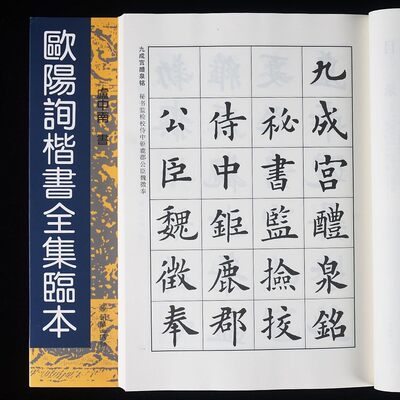 歐陽詢楷書全集臨本
盧中南 書
九成宮醴泉銘
祕書監撿挍
侍中鉅鹿郡
公臣魏徵奉
九成宫醴泉铭 秘书监检校侍中钜鹿郡公臣魏徵奉